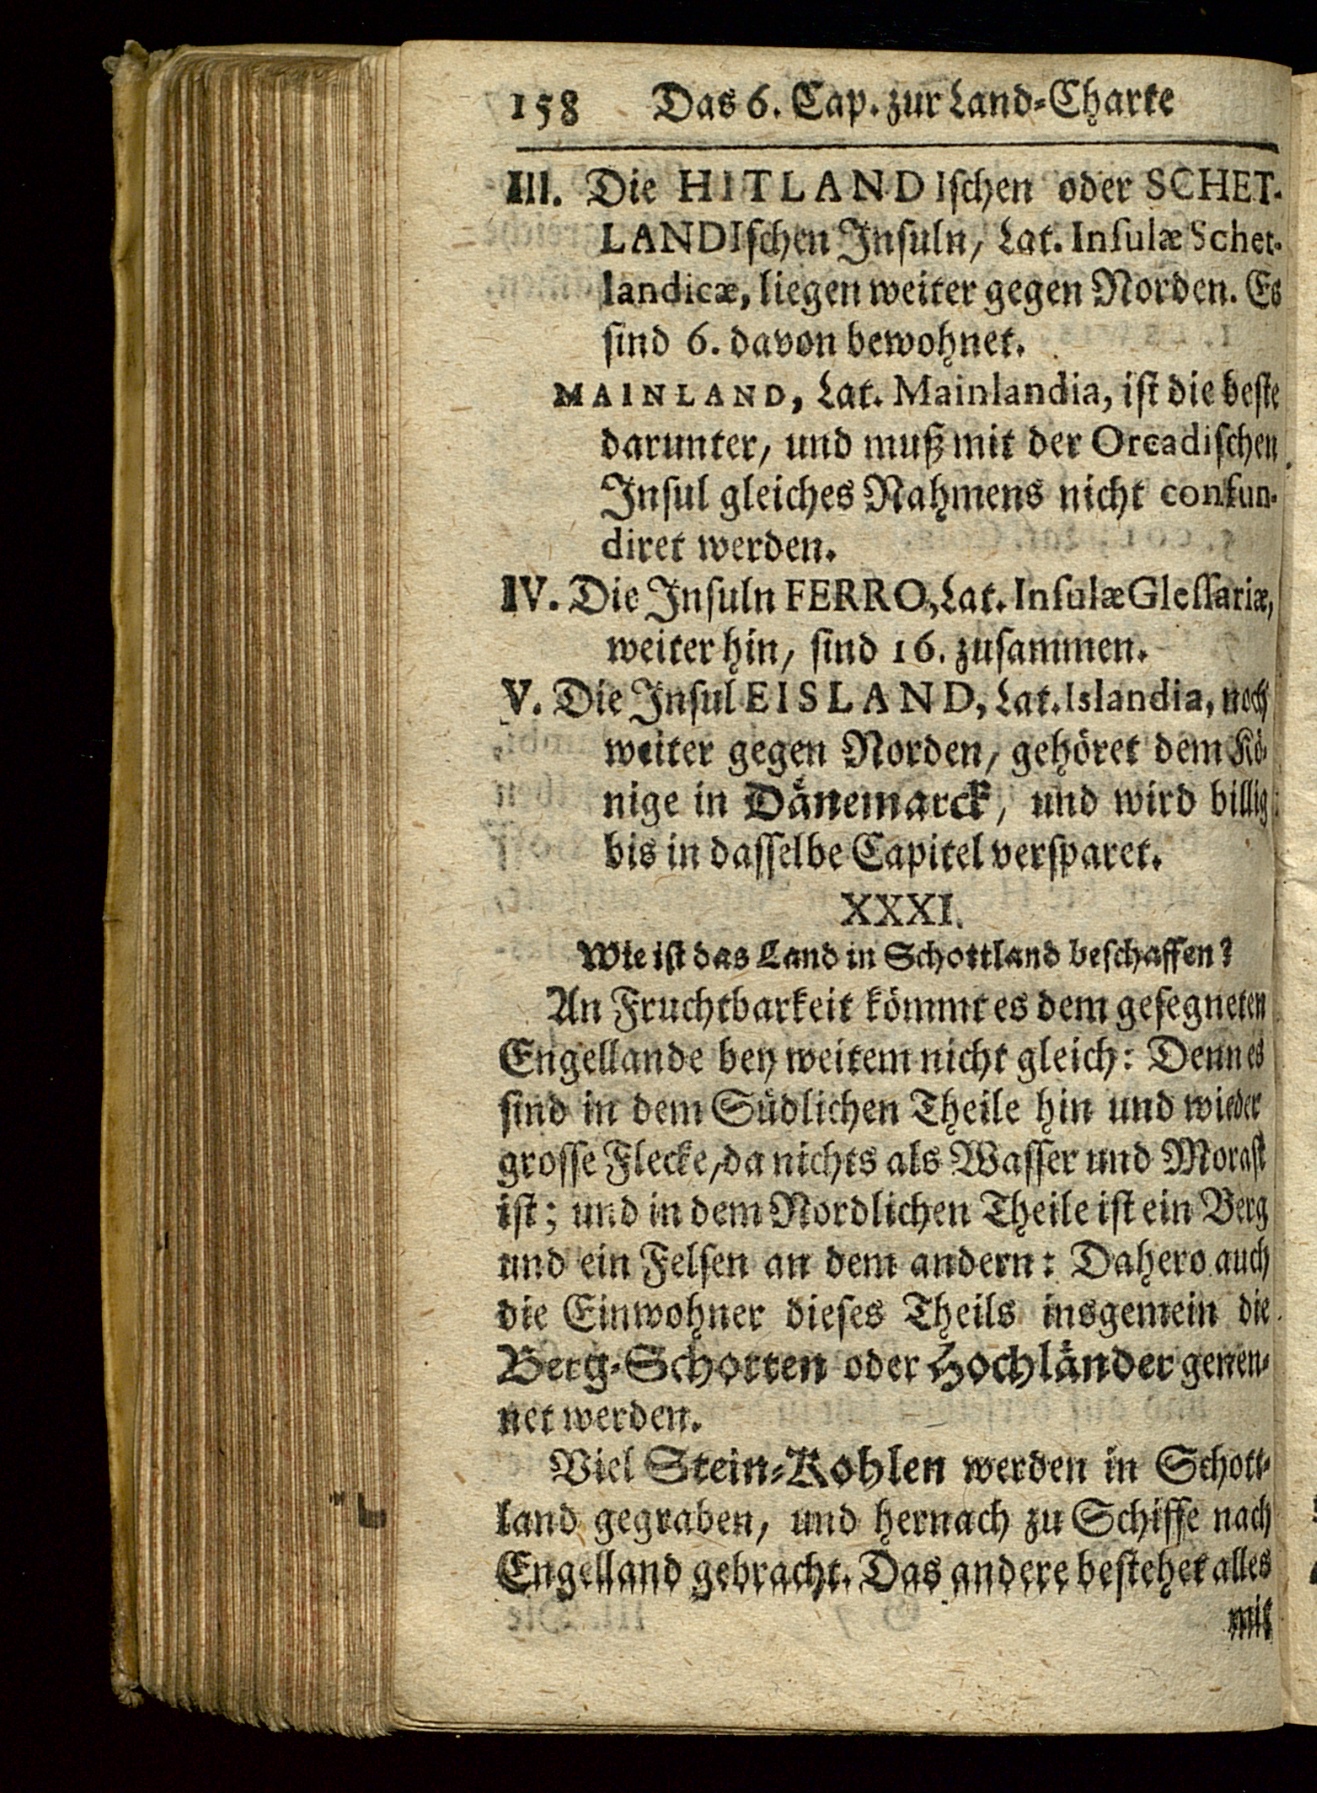 158 Das 6. Cap. zur Land-Charte
III. Die HITLANDIschen oder SCHET-
LANDIschen Insuln, Lat. Insulæ Schet-
landicæ, liegen weiter gegen Norden. Es
sind 6. davon bewohnet.
MAINLAND, Lat. Mainlandia, ist die beste
darunter, und muß mit der Orcadischen
Insul gleiches Nahmens nicht confun-
diret werden.
IV. Die Insuln FERRO, Lat. Insulæ Glessariæ,
weiter hin, sind 16. zusammen.
V. Die Insul EISLAND, Lat. Islandia, noch
weiter gegen Norden, gehöret dem Kö-
nige in Dänemarck, und wird billig
bis in dasselbe Capitel versparet.
XXXI.
Wie ist das Land in Schottland beschaffen?
An Fruchtbarkeit kömmt es dem gesegneten
Engellande bey weitem nicht gleich: Denn es
sind in dem Südlichen Theile hin und wieder
grosse Flecke, da nichts als Wasser und Morast
ist; und in dem Nordlichen Theile ist ein Berg
und ein Felsen an dem andern: Dahero auch
die Einwohner dieses Theils insgemein die
Berg-Schotten oder Hochländer genen-
net werden.
Viel Stein-Kohlen werden in Schott-
land gegraben, und hernach zu Schiffe nach
Engelland gebracht. Das andere bestehet alles
mit